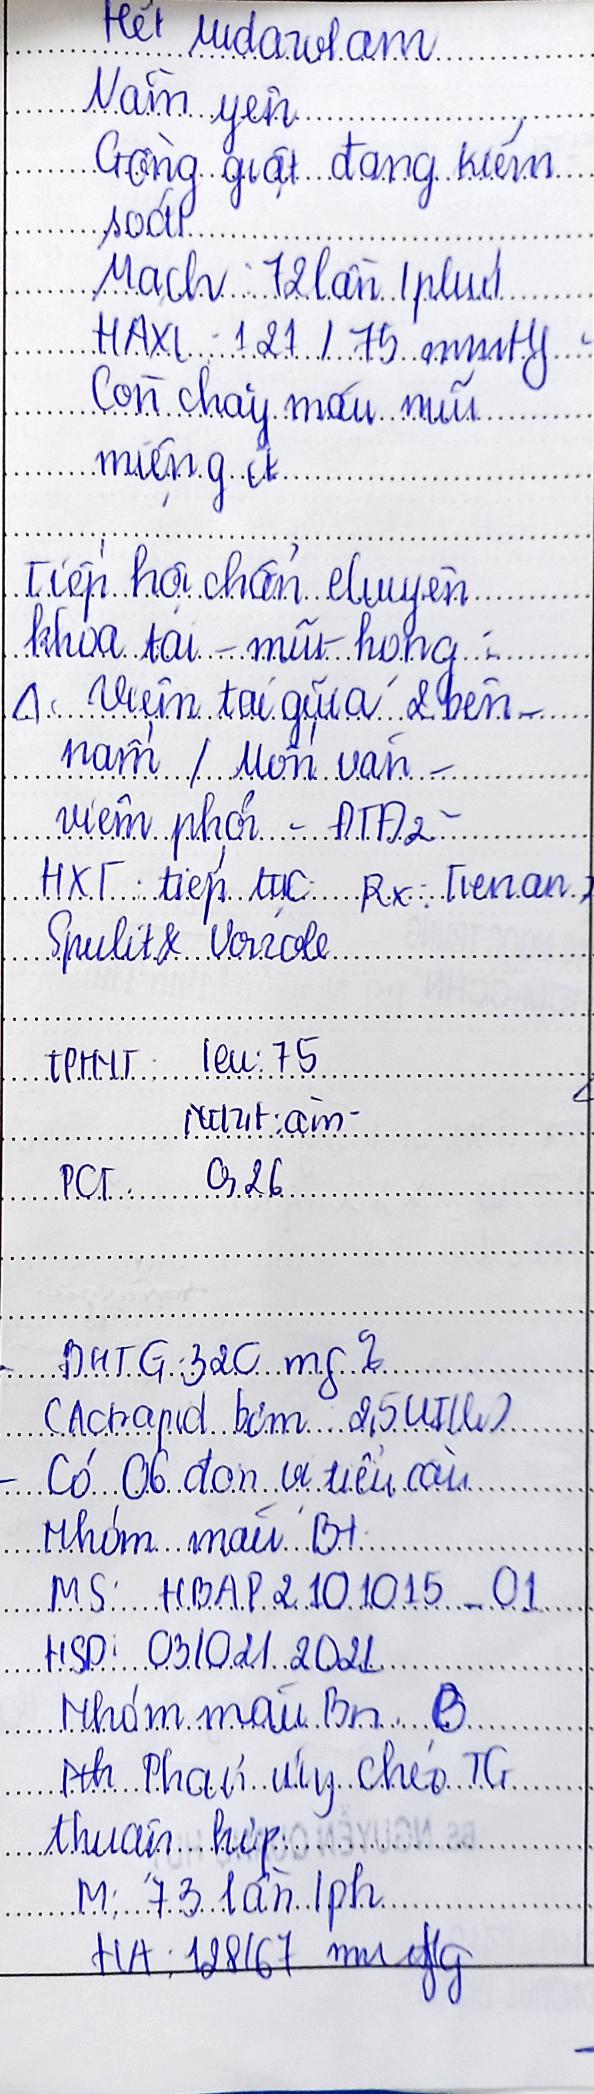 Hết midazolam
Nằm yên
Gồng giật đang kiểm
soát
Mạch: 72 lần/phút
HAXL: 121/75 mmHg
Còn chảy máu mũi
miệng ít
Tiếp hội chẩn chuyên
khoa tai-mũi-họng:
Δ: Viêm tai giữa 2 bên-
nấm / 
viêm phổi - ĐTĐ2-
HXT: tiếp tục Rx: Tienam,
Spulit & Vorzole
TPTNT: leu: 75
Nitrit: âm-
PCT: 0,26
- ĐHTG: 320 mg%
(Actrapid bơm 2,5UI/h)
- Có 06 đơn vị tiểu cầu
Nhóm máu B+
MS: HBAP2101015-01
HSD: 03/02/2021
Nhóm máu Bn: B
Phản ứng chéo TG
thuận hợp
M: 73 lần/ph
HA: 128/67 mmHg